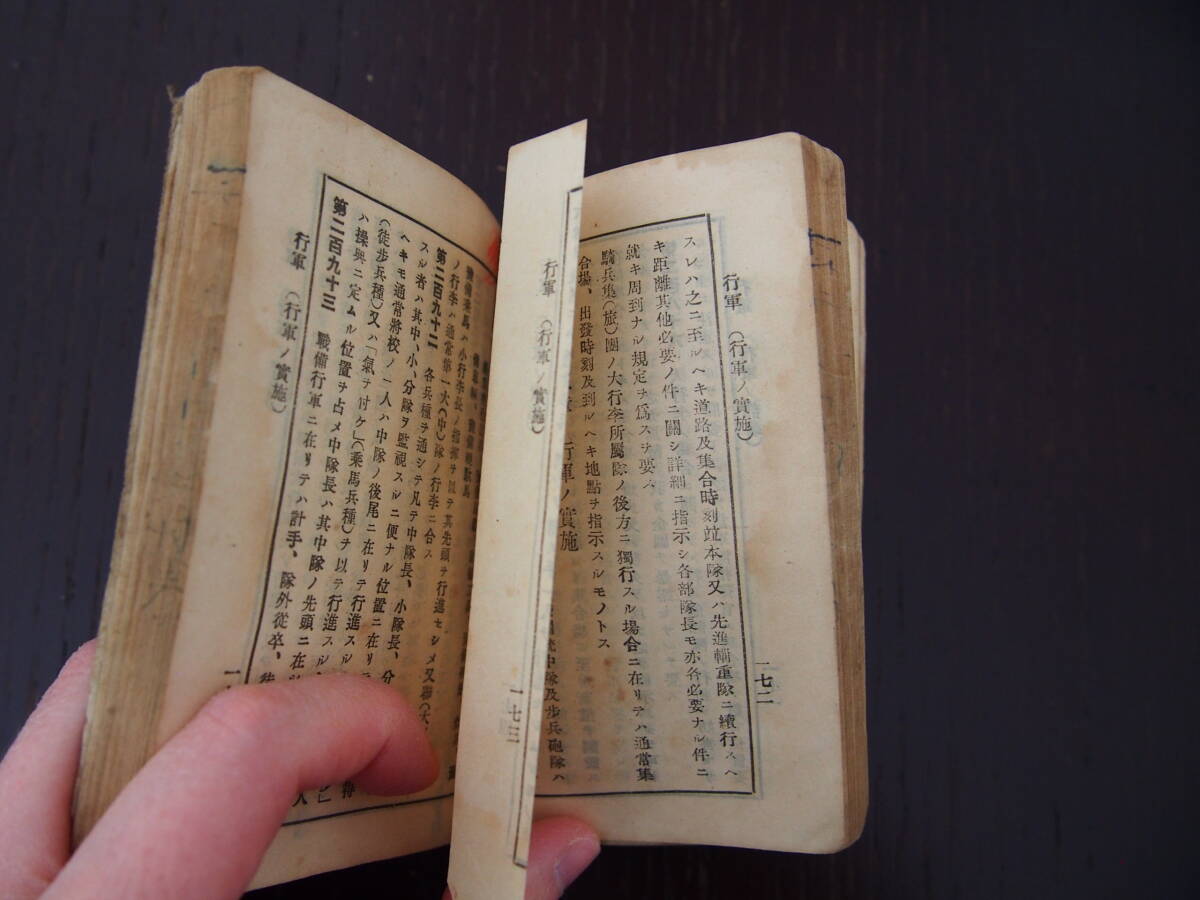 行軍 (行軍ノ實施)
一七二
スレハ之ニ至ルヘキ道路及集合時刻竝本隊又ハ先進輜重隊ニ續行スヘ
キ距離其他必要ノ件ニ關シ詳細ニ指示シ各部隊長モ亦各必要ナル件ニ
就キ周到ナル規定ヲ爲スヲ要ス
騎兵集(旅)團ノ大行李所屬隊ノ後方ニ獨行スル場合ニ在リテハ通常集
合場、出發時刻及到ルヘキ地點ヲ指示スルモノトス
行軍ノ實施
中隊及步兵砲隊ハ
行軍 (行軍ノ實施)
一七三
ノ行李ハ通常第一大(中)隊ノ行李ニ合ス
第二百九十二 各兵種ヲ通シテ凡テ中隊長、小隊長、分
スル者ハ其中、小、分隊ヲ監視スルニ便ナル位置ニ在リ
ヘキモ通常將校ノ一人ハ中隊ノ後尾ニ在リテ行進スル
(徒步兵種)又ハ「氣ヲ付ケ」(乘馬兵種)ヲ以テ行進スル
ハ操典ニ定ムル位置ヲ占メ中隊長ハ其中隊ノ先頭ニ在
第二百九十三 戰備行軍ニ在リテハ計手、隊外從卒、
行軍 (行軍ノ實施)